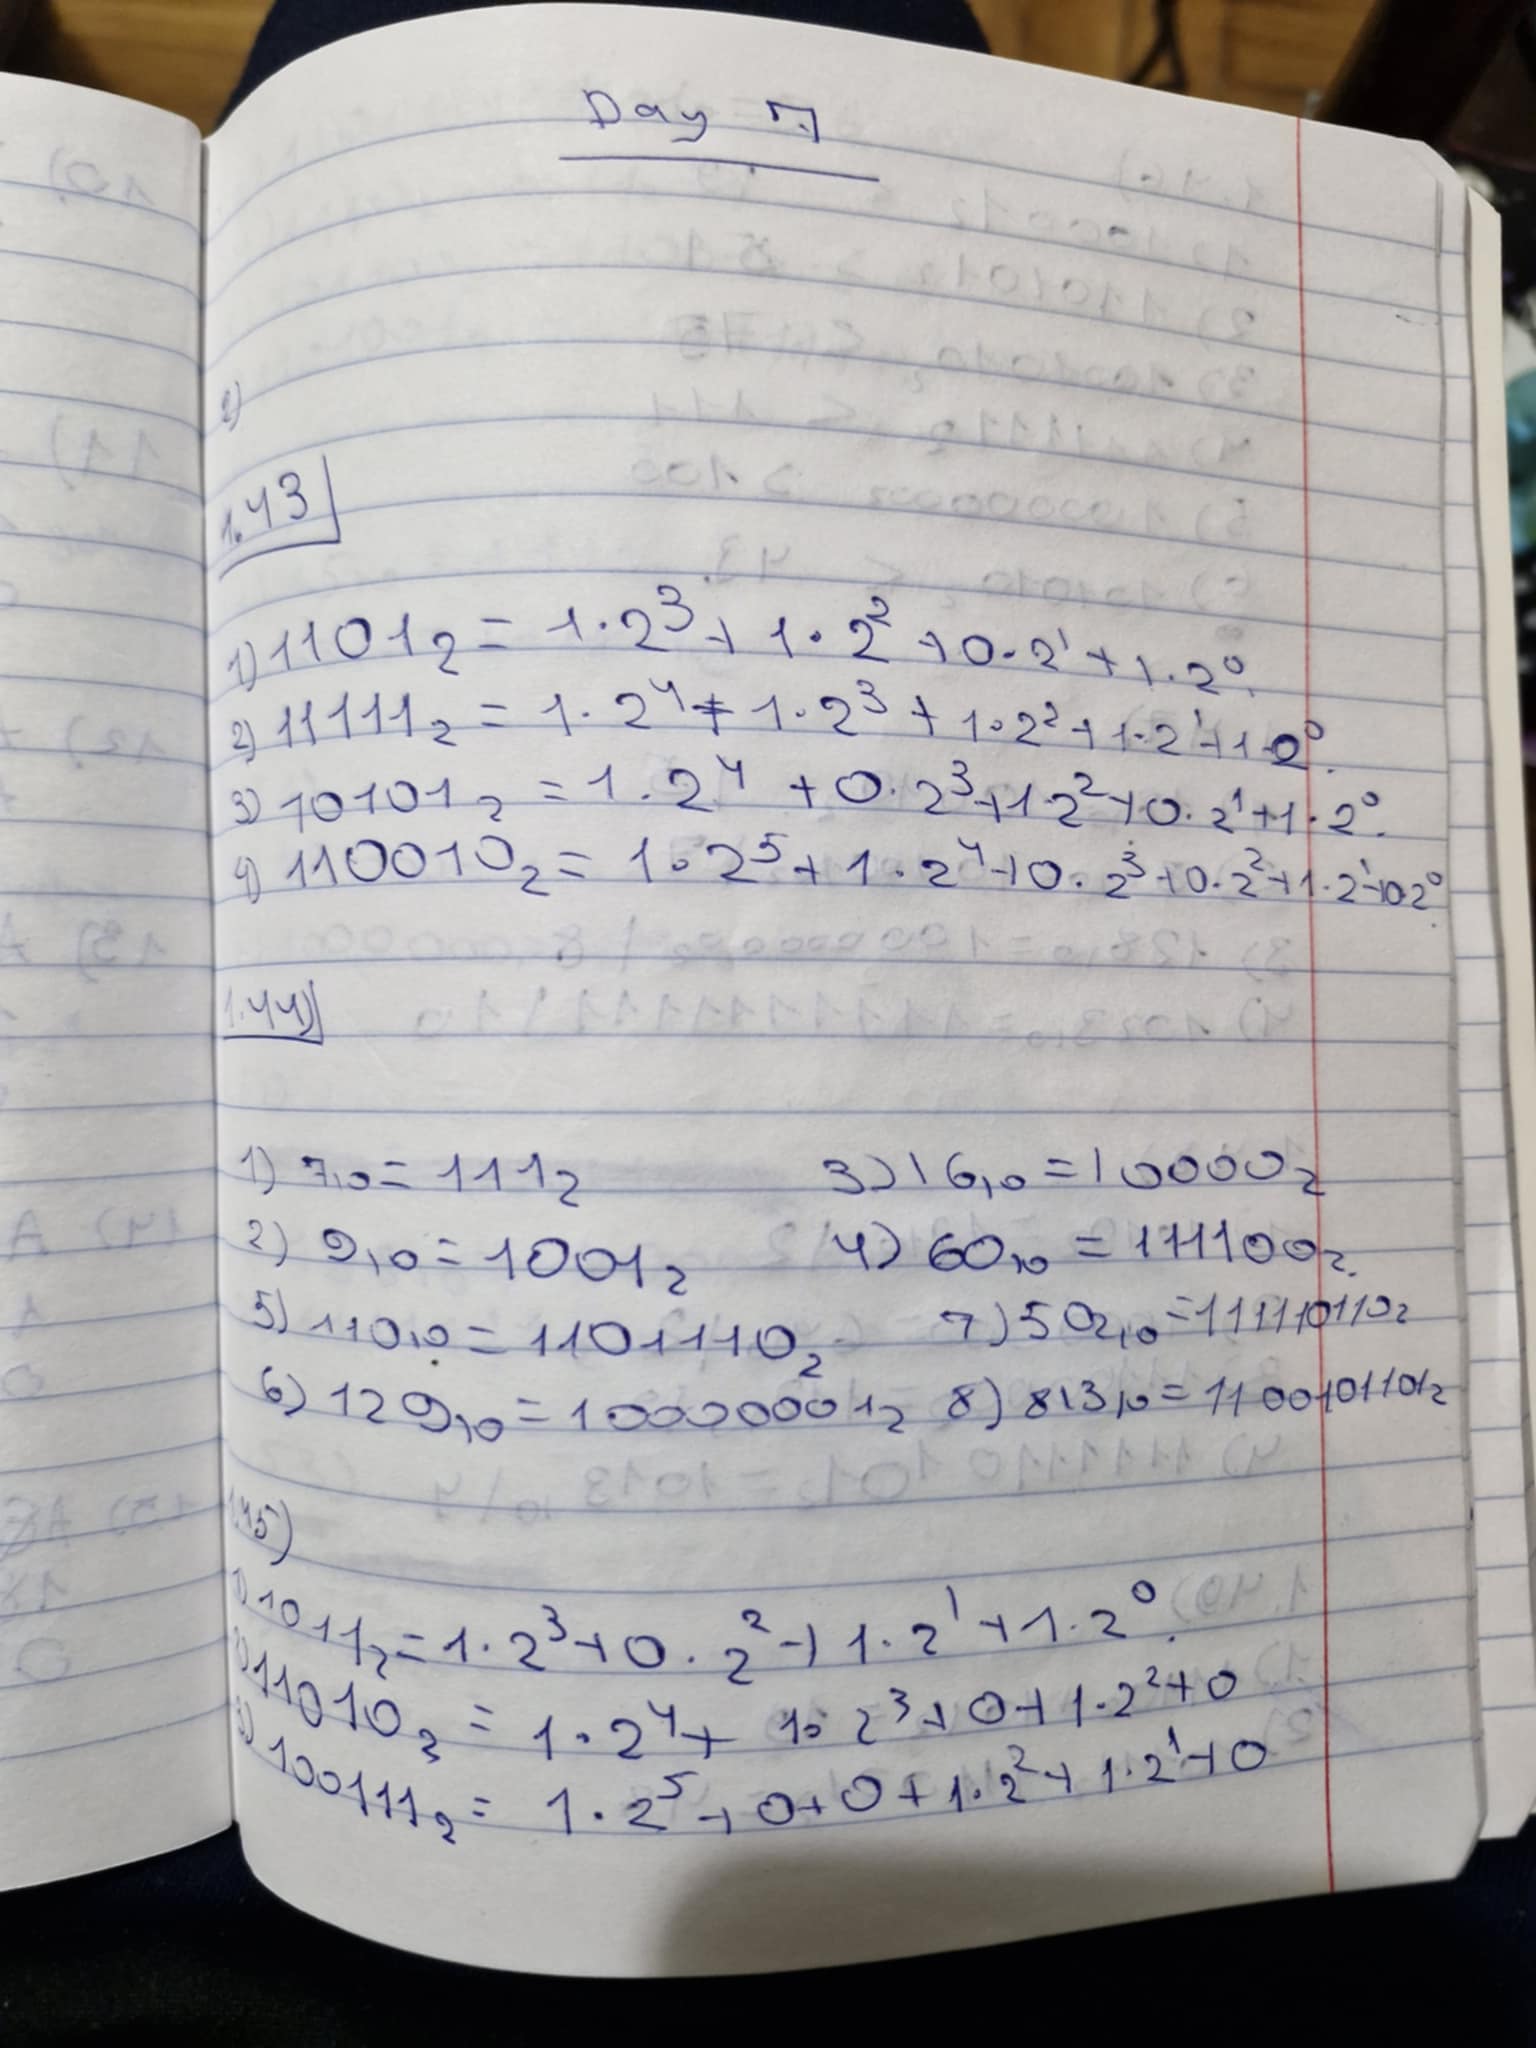 Day 7
2)
1.43
1) 1101₂ = 1·2³ + 1·2² + 0·2¹ + 1·2⁰.
2) 11111₂ = 1·2⁴ + 1·2³ + 1·2² + 1·2¹ + 1·2⁰.
3) 10101₂ = 1·2⁴ + 0·2³ + 1·2² + 0·2¹ + 1·2⁰.
4) 110010₂ = 1·2⁵ + 1·2⁴ + 0·2³ + 0·2² + 1·2¹ + 0·2⁰.
1.44)
1) 7₁₀ = 111₂ 3) 16₁₀ = 10000₂
2) 9₁₀ = 1001₂ 4) 60₁₀ = 111100₂.
5) 110₁₀ = 1101110₂ 7) 502₁₀ = 111110110₂
6) 129₁₀ = 10000001₂ 8) 813₁₀ = 1100101101₂
1.45)
1) 1011₂ = 1·2³ + 0·2² + 1·2¹ + 1·2⁰.
2) 11010₂ = 1·2⁴ + 1·2³ + 0 + 1·2² + 0
3) 100111₂ = 1·2⁵ + 0 + 0 + 1·2² + 1·2¹ + 0